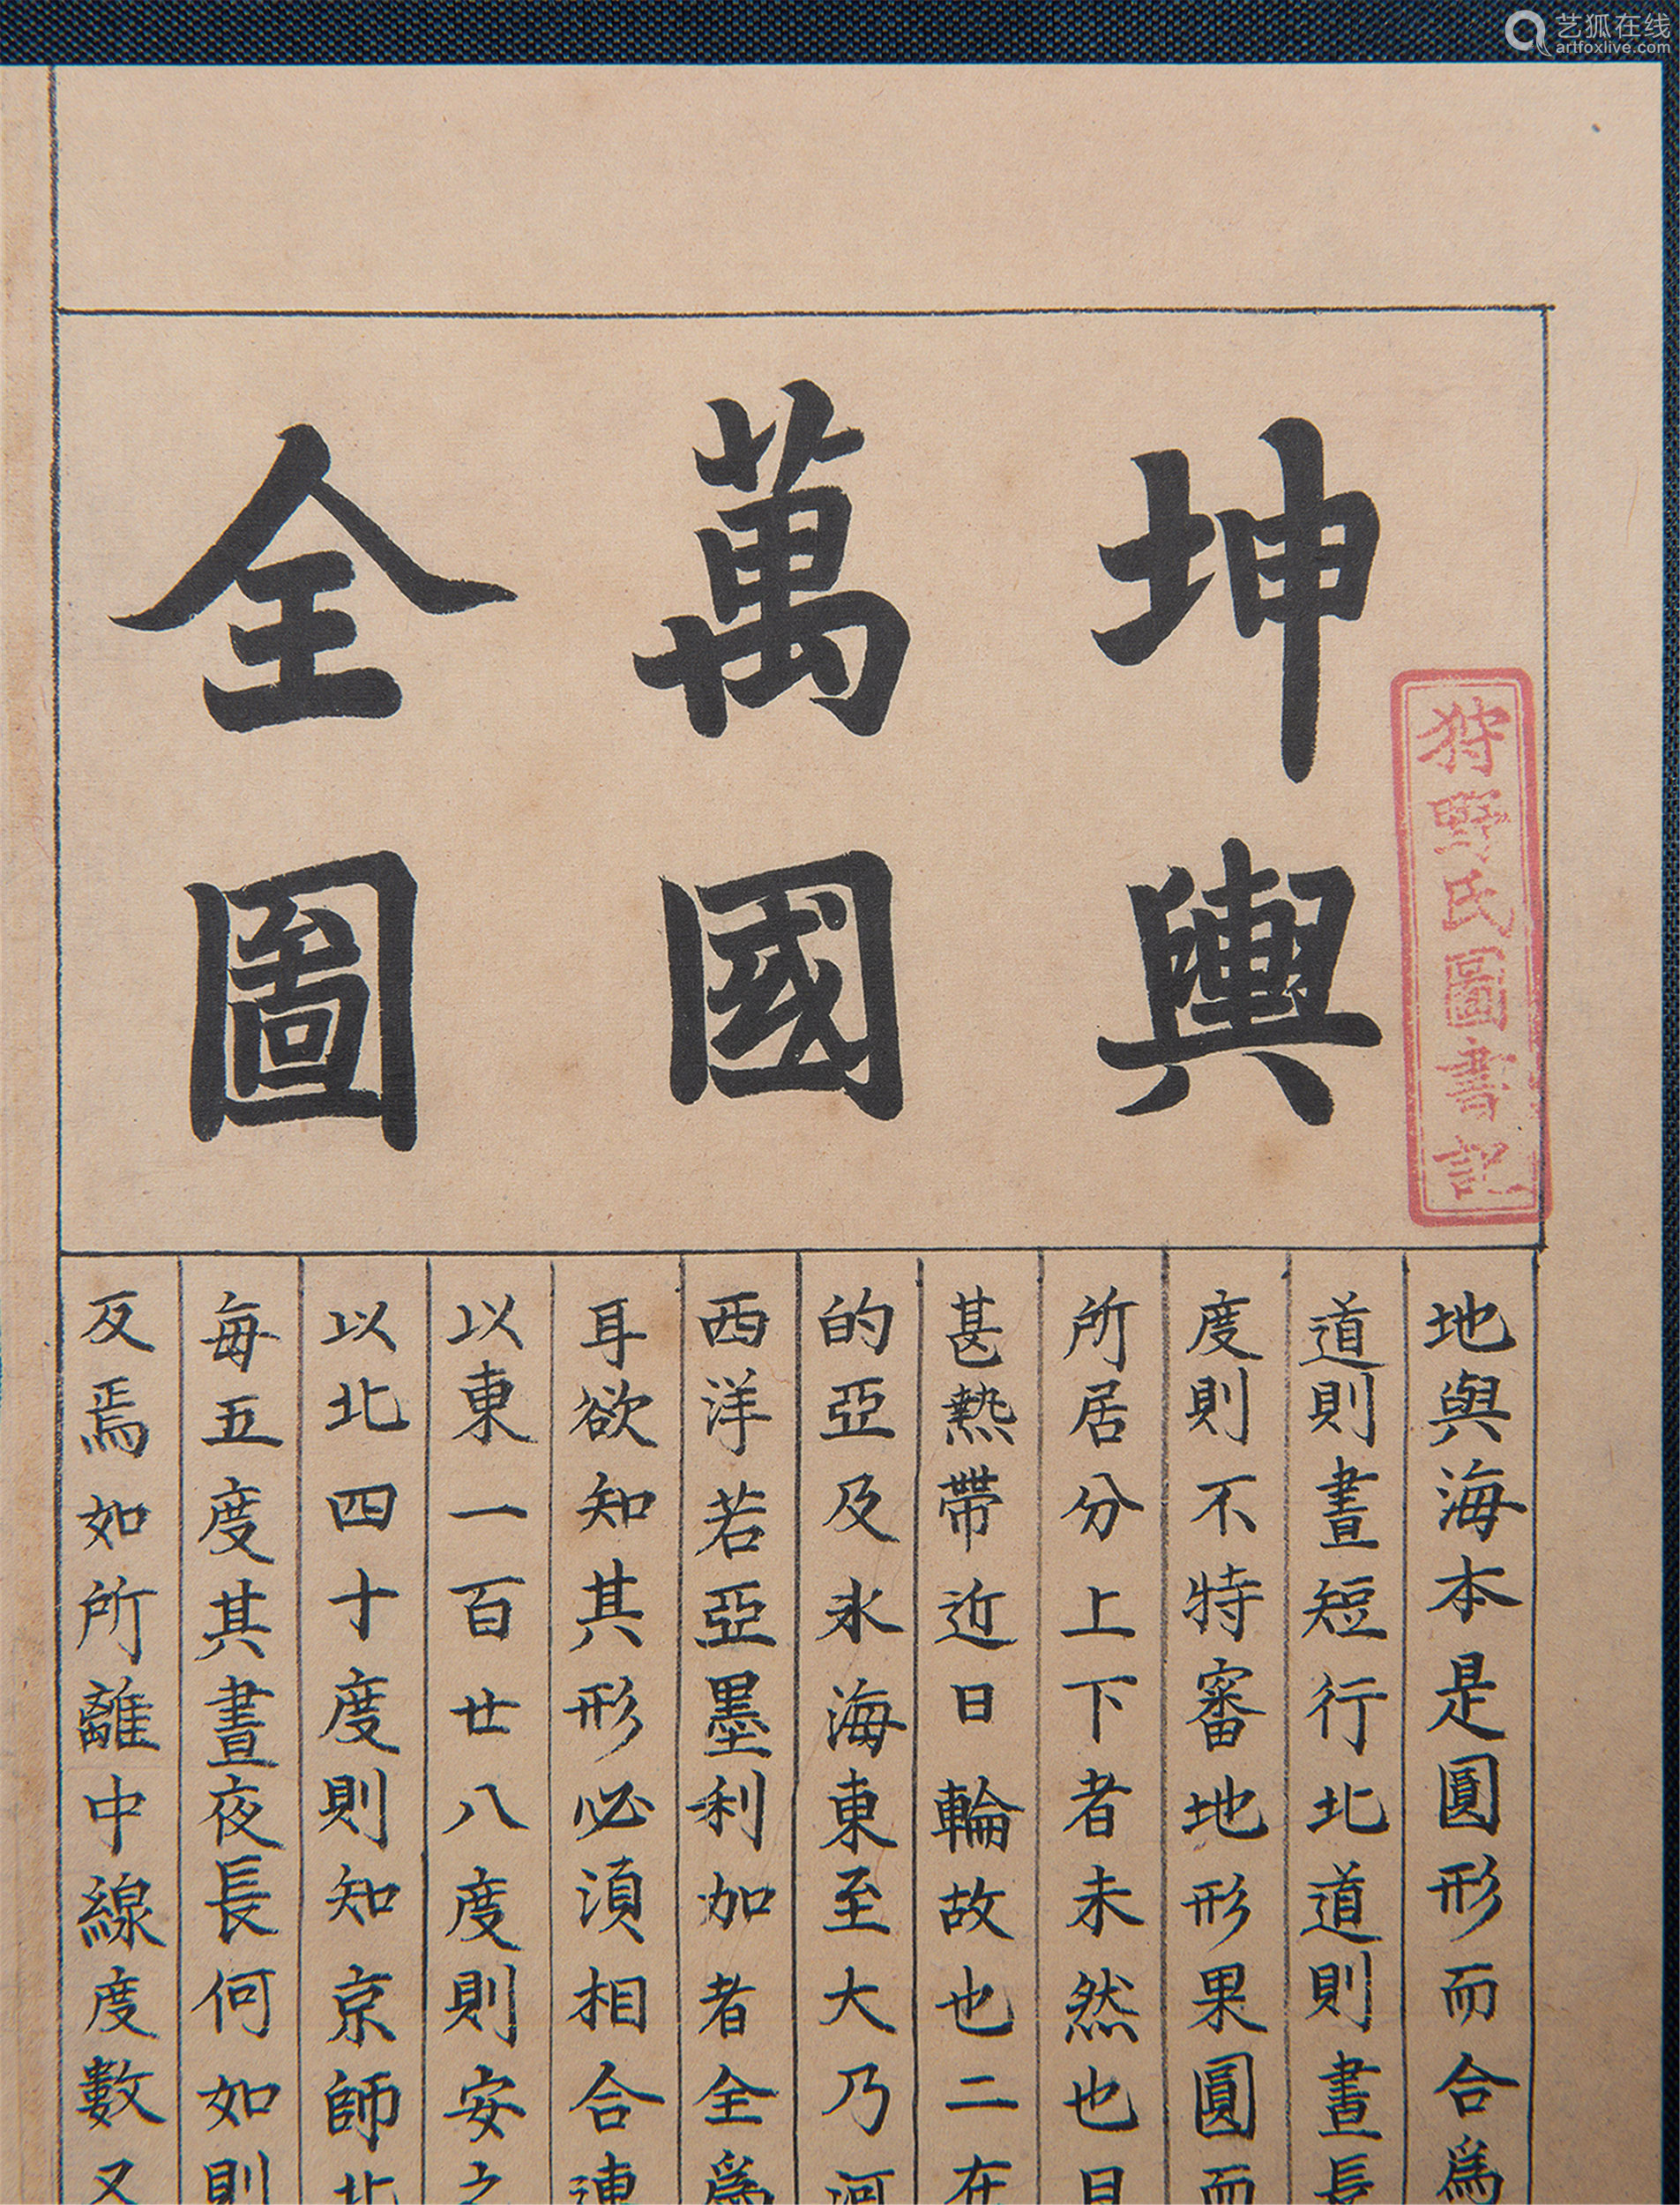 艺狐在线
artfoxlive.com
坤輿
萬國
全圖
狩野氏圖書記
地與海本是圓形而合爲
道則晝短行北道則晝長
度則不特審地形果圓而
所居分上下者未然也且
甚熱帶近日輪故也二在
的亞及氷海東至大乃河
西洋若亞墨利加者全爲
耳欲知其形必湏相合連
以東一百廿八度則安之
以北四十度則知京師北
每五度其晝夜長何如則
反焉如所離中線度數又